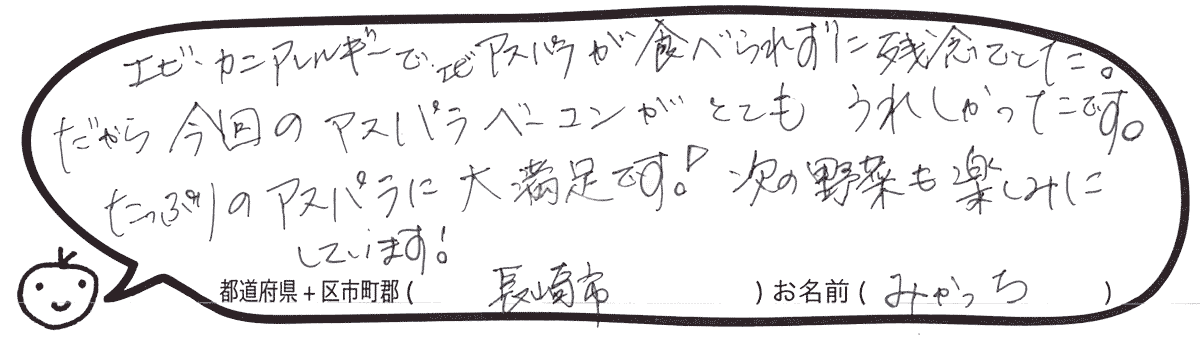 エビ・カニアレルギーで、エビアスパラが食べられずに残念でした。
だから今回のアスパラベーコンがとてもうれしかったです。
たっぷりのアスパラに大満足です!次の野菜も楽しみに
しています!
都道府県+区市町郡(長崎市)お名前(みかっち)